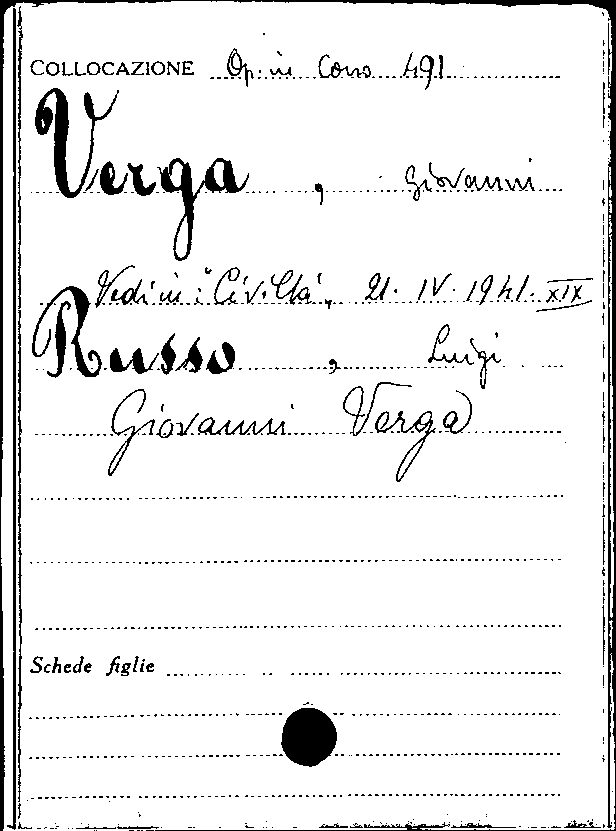 COLLOCAZIONE Op. in Corso 491
Verga, Giovanni
Vedi in: "Civiltà", 21. IV. 1941. XIX
Russo, Luigi
Giovanni Verga
Schede figlie